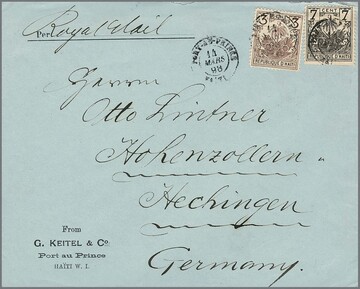 Per Royal Mail
PORT-AU-PRINCE
14
MARS
98
HAITI
3 3
REPUBLIQUE D'HAITI
7 CENT 7
REPUBLIQUE D'HAITI
Herrn
Otto Lintner
Hohenzollern
Hechingen
Germany.
From
G. KEITEL & Co.
Port au Prince
HAÏTI W. I.